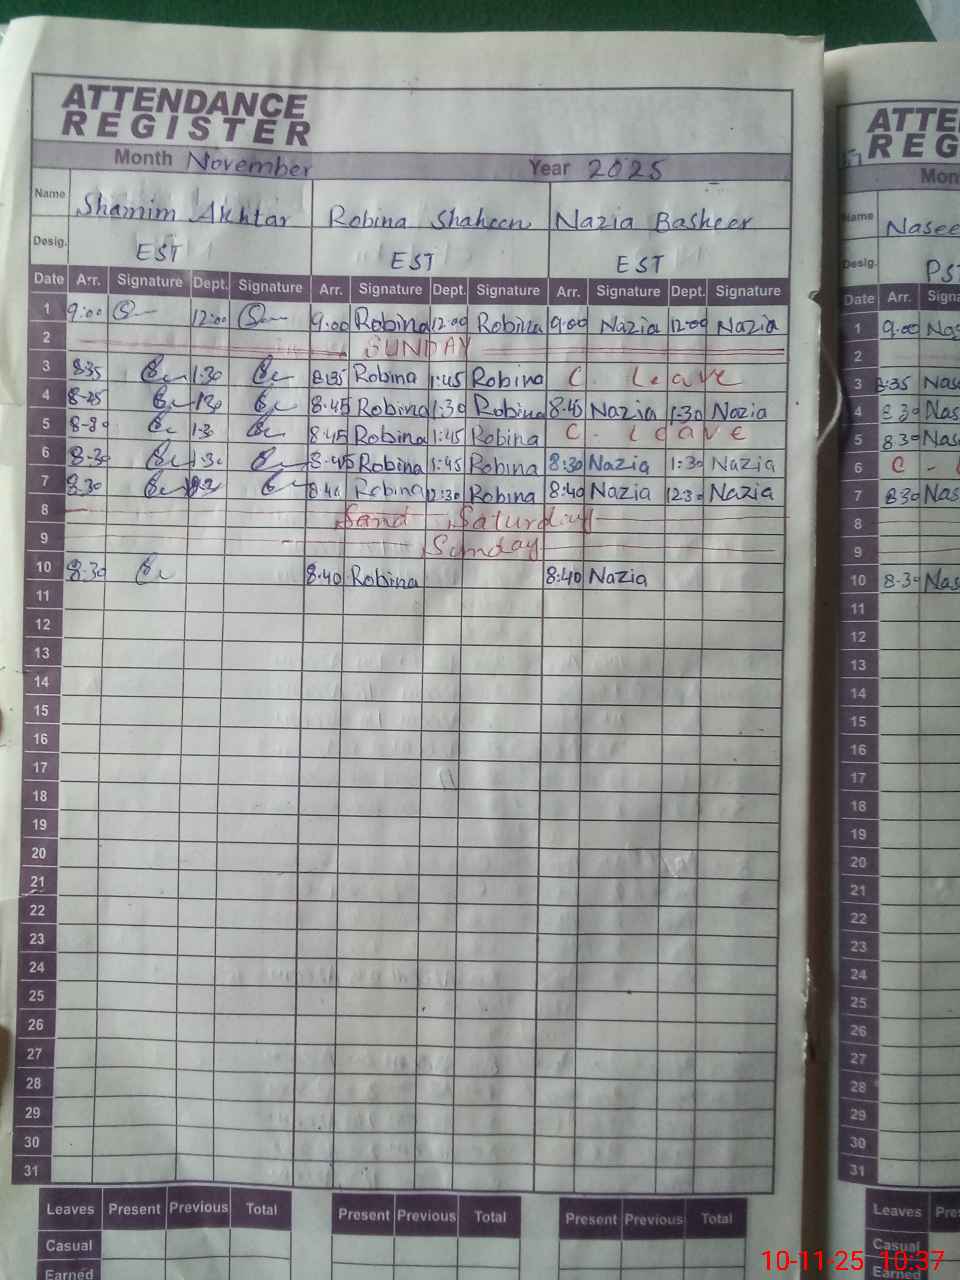 ATTENDANCE
REGISTER
Month November Year 2025
Name Shamim Akhtar Robina Shaheen Nazia Basheer
Desig. EST EST EST
Date Arr. Signature Dept. Signature Arr. Signature Dept. Signature Arr. Signature Dept. Signature
1 9:00 12:00 9:00 Robina 12:00 Robina 9:00 Nazia 12:00 Nazia
2 SUNDAY
3 8:35 1:30 8:35 Robina 1:45 Robina C. Leave
4 8-25 1:30 8.45 Robina 1:30 Robina 8:40 Nazia 1:30 Nazia
5 8-30 1:30 8:45 Robina 1:45 Robina C. Leave
6 8:30 1:30 8.45 Robina 1:45 Robina 8:30 Nazia 1:30 Nazia
7 8:30 8:40 Robina 12:30 Robina 8:40 Nazia 12:30 Nazia
8 Saturday
9 Sunday
10 8:30 8.40 Robina 8:40 Nazia
11
12
13
14
15
16
17
18
19
20
21
22
23
24
25
26
27
28
29
30
31
Leaves Present Previous Total Present Previous Total Present Previous Total
Casual
Earned
ATTE
REG
Mon
Name Nasee
Desig. PST
Date Arr. Signa
1 9.00 Nas
2
3 8:35 Nas
4 8.30 Nas
5 8.30 Nas
6 C - L
7 8:30 Nas
8
9
10 8-30 Nas
11
12
13
14
15
16
17
18
19
20
21
22
23
24
25
26
27
28
29
30
31
Leaves Pre
Casual
Earned
10-11-25 10:37